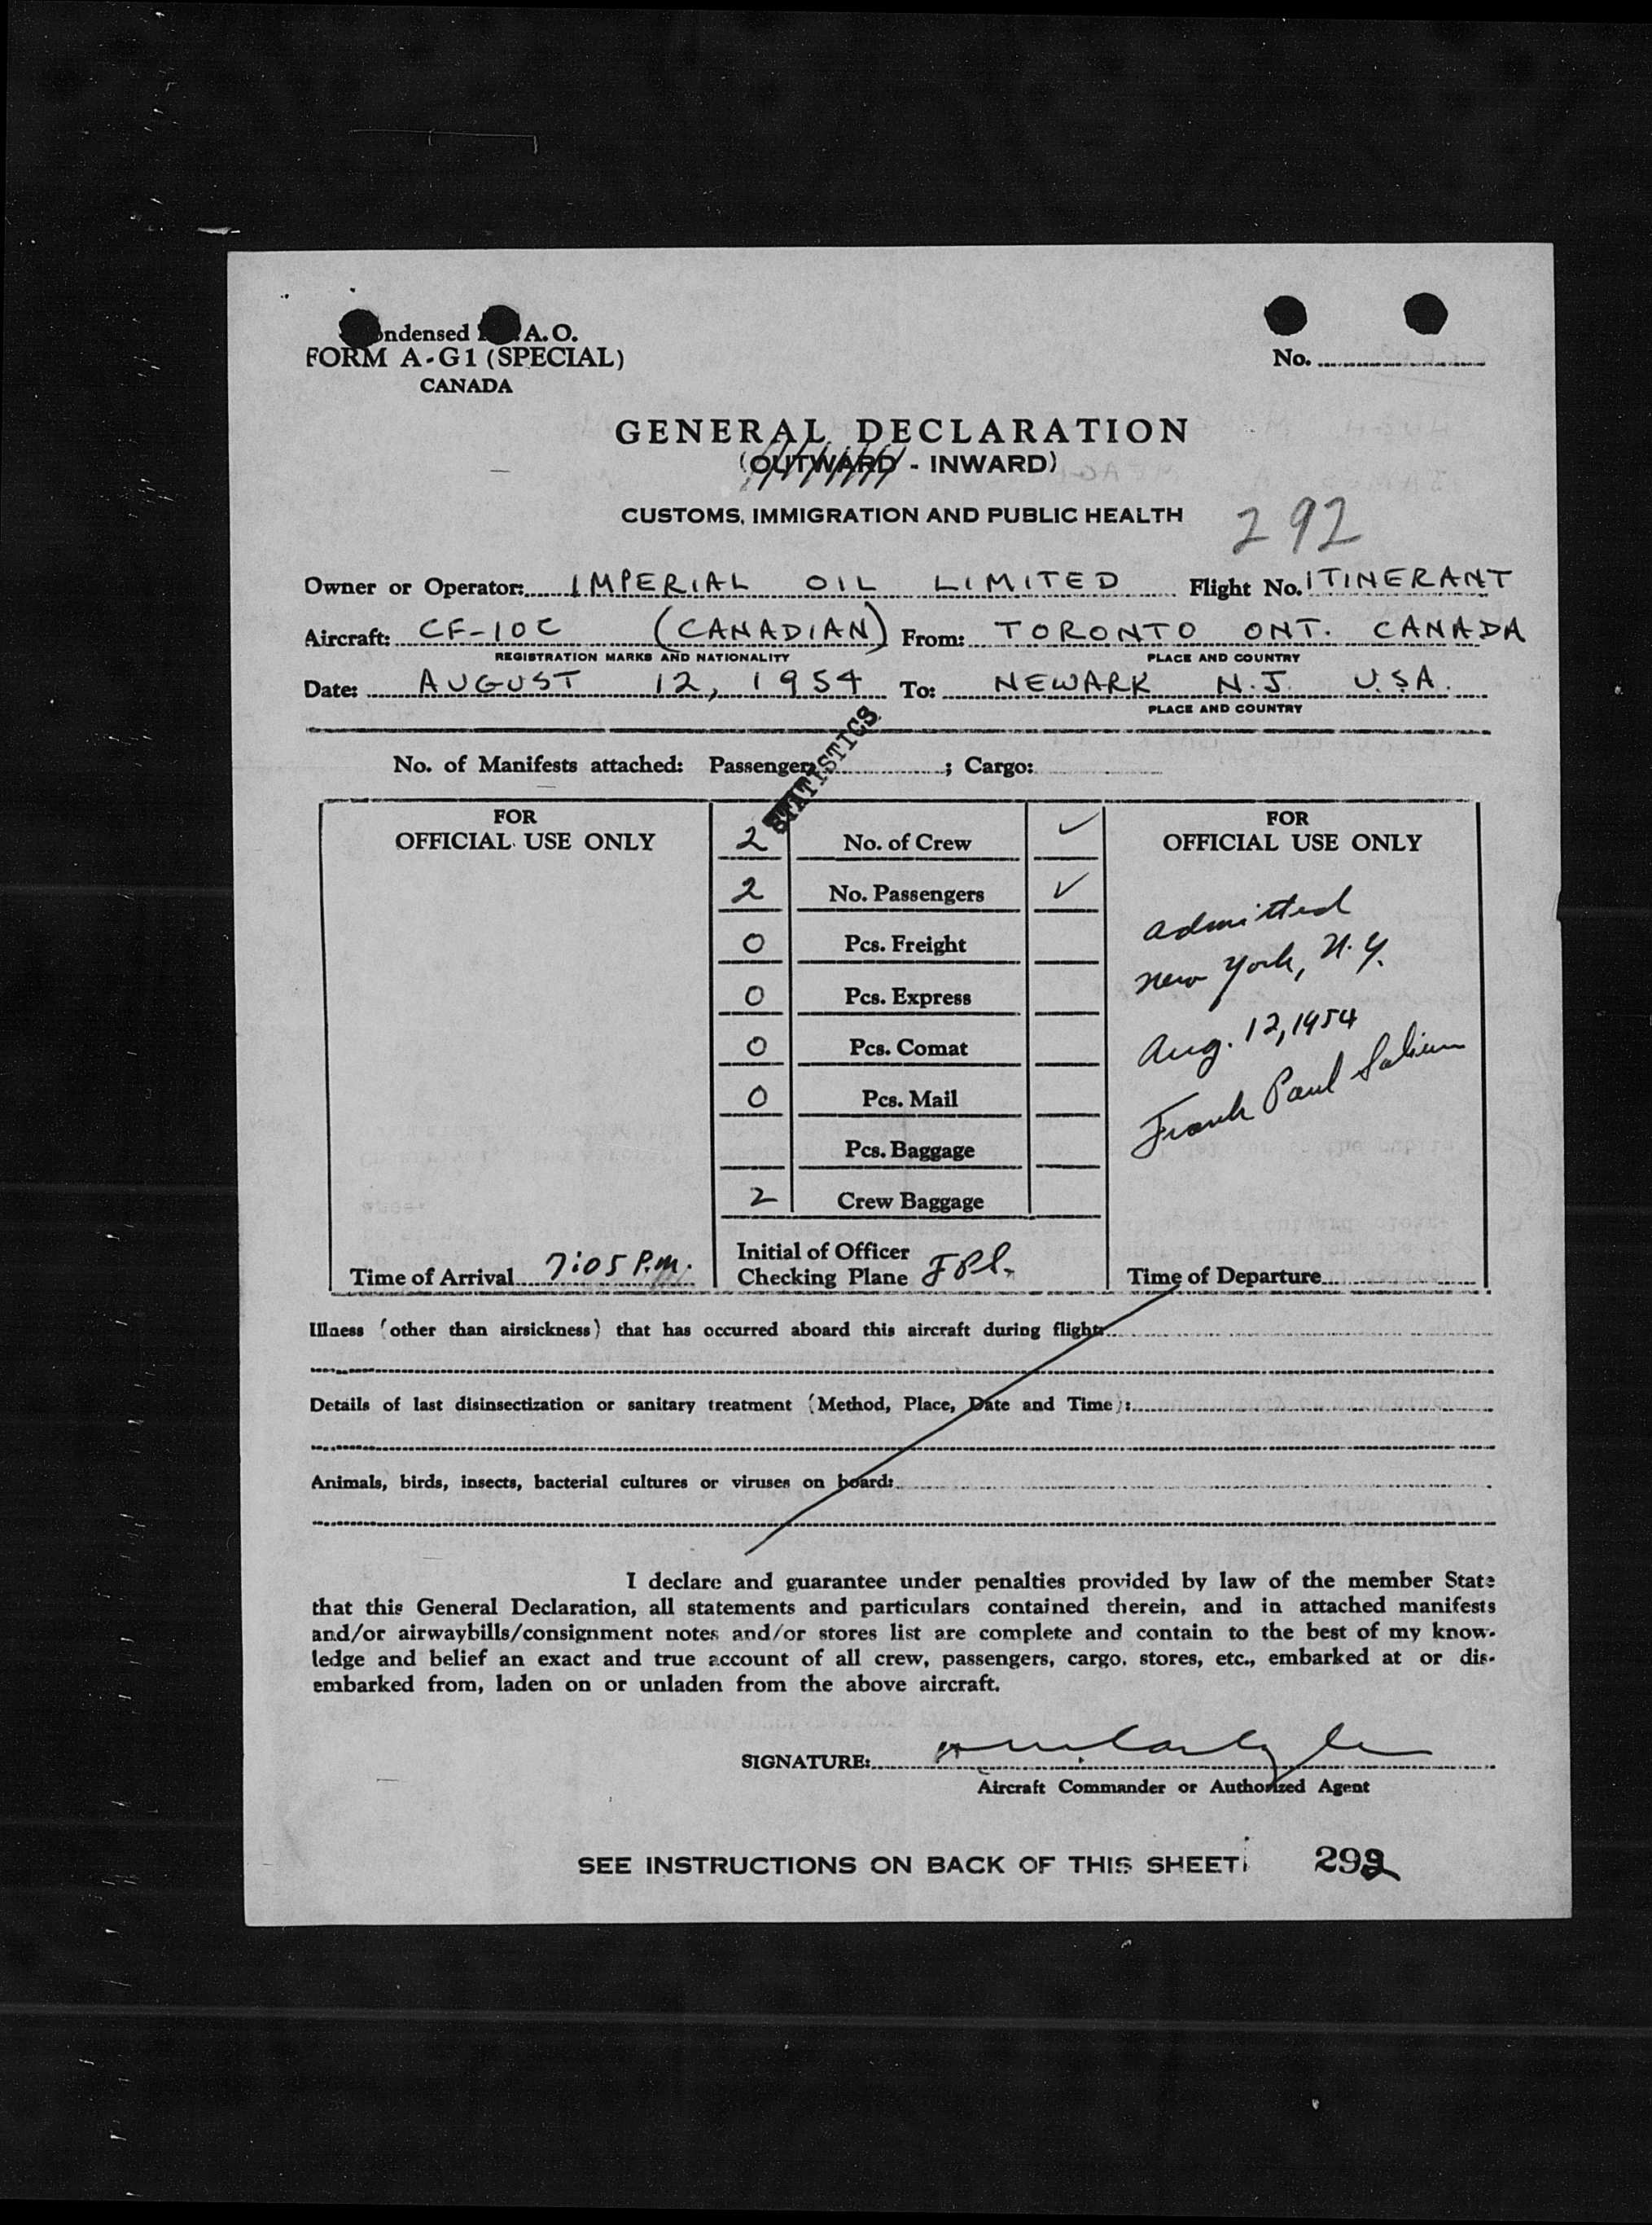 ondensed A. O.
FORM A-G1 (SPECIAL)
CANADA
No.
GENERAL DECLARATION
(OUTWARD - INWARD)
CUSTOMS, IMMIGRATION AND PUBLIC HEALTH
292
Owner or Operator: IMPERIAL OIL LIMITED Flight No. ITINERANT
Aircraft: CF-IOC (CANADIAN) From: TORONTO ONT. CANADA
REGISTRATION MARKS AND NATIONALITY PLACE AND COUNTRY
Date: AUGUST 12, 1954 To: NEWARK N.J. U.S.A.
PLACE AND COUNTRY
STATISTICS
No. of Manifests attached: Passenger: ; Cargo:
FOR
OFFICIAL USE ONLY
2 No. of Crew ✓
2 No. Passengers ✓
0 Pcs. Freight
0 Pcs. Express
0 Pcs. Comat
0 Pcs. Mail
Pcs. Baggage
2 Crew Baggage
FOR
OFFICIAL USE ONLY
admitted
New York, N.Y.
Aug. 12, 1954
Frank Paul
Time of Arrival 7:05 P.M.
Initial of Officer
Checking Plane
Time of Departure
Illness (other than airsickness) that has occurred aboard this aircraft during flight:
Details of last disinsectization or sanitary treatment (Method, Place, Date and Time):
Animals, birds, insects, bacterial cultures or viruses on board:
I declare and guarantee under penalties provided by law of the member State
that this General Declaration, all statements and particulars contained therein, and in attached manifests
and/or airwaybills/consignment notes and/or stores list are complete and contain to the best of my know-
ledge and belief an exact and true account of all crew, passengers, cargo, stores, etc., embarked at or dis-
embarked from, laden on or unladen from the above aircraft.
SIGNATURE:
Aircraft Commander or Authorized Agent
SEE INSTRUCTIONS ON BACK OF THIS SHEET
292